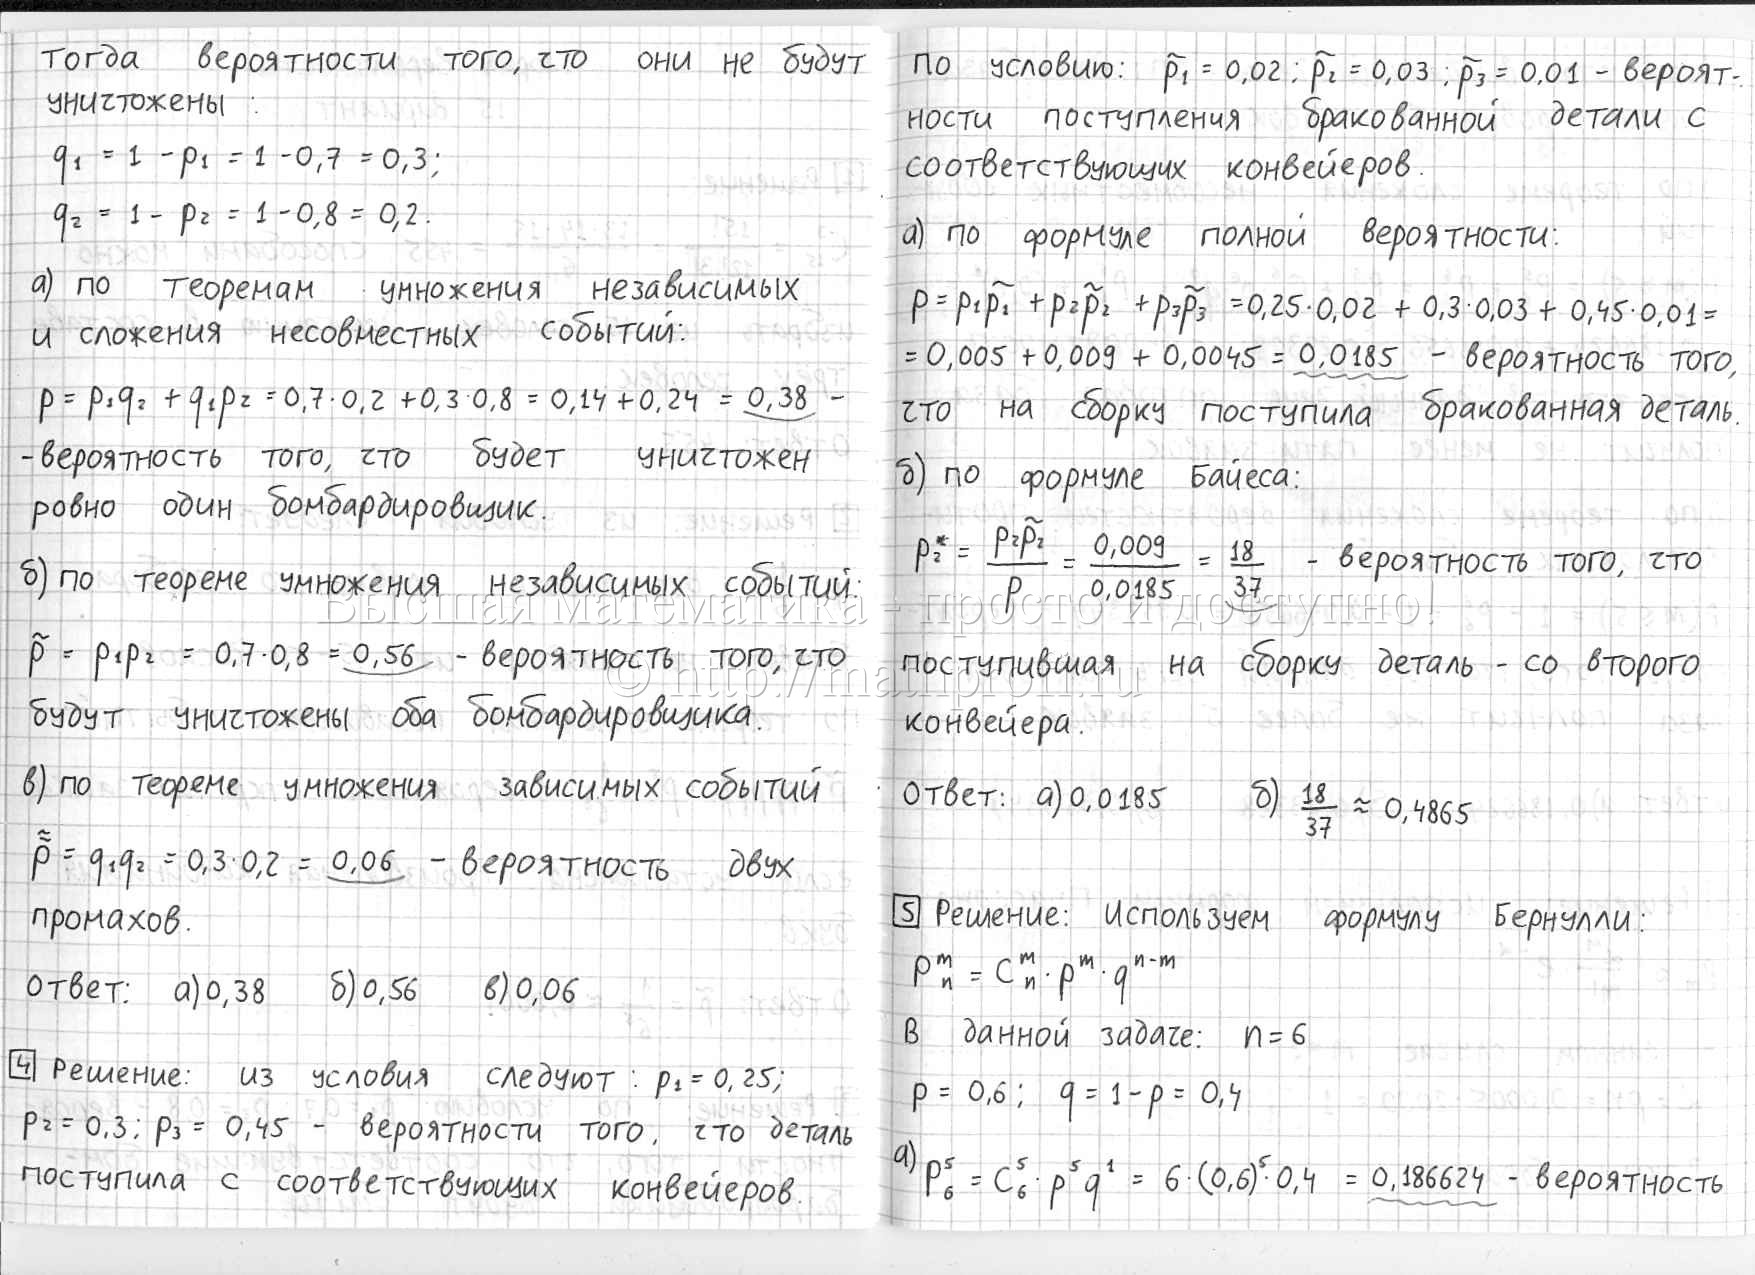 Тогда вероятности того, что они не будут
уничтожены:
q₁ = 1 - p₁ = 1 - 0,7 = 0,3;
q₂ = 1 - p₂ = 1 - 0,8 = 0,2.
а) по теоремам умножения независимых
и сложения несовместных событий:
p = p₁q₂ + q₁p₂ = 0,7·0,2 + 0,3·0,8 = 0,14 + 0,24 = 0,38 -
- вероятность того, что будет уничтожен
ровно один бомбардировщик.
б) по теореме умножения независимых событий:
p̃ = p₁p₂ = 0,7·0,8 = 0,56 - вероятность того, что
будут уничтожены оба бомбардировщика.
в) по теореме умножения зависимых событий
p̃̃ = q₁q₂ = 0,3·0,2 = 0,06 - вероятность двух
промахов.
Ответ: а) 0,38 б) 0,56 в) 0,06
4 Решение: из условия следуют: p₁ = 0,25;
p₂ = 0,3; p₃ = 0,45 - вероятности того, что деталь
поступила с соответствующих конвейеров.
По условию: p̃₁ = 0,02; p̃₂ = 0,03; p̃₃ = 0,01 - вероят-
ности поступления бракованной детали с
соответствующих конвейеров.
а) по формуле полной вероятности:
p = p₁p̃₁ + p₂p̃₂ + p₃p̃₃ = 0,25·0,02 + 0,3·0,03 + 0,45·0,01 =
= 0,005 + 0,009 + 0,0045 = 0,0185 - вероятность того,
что на сборку поступила бракованная деталь.
б) по формуле Байеса:
p₂* = p₂p̃₂/p = 0,009/0,0185 = 18/37 - вероятность того, что
поступившая на сборку деталь - со второго
конвейера.
Ответ: а) 0,0185 б) 18/37 ≈ 0,4865
5 Решение: Используем формулу Бернулли:
Pₙᵐ = Cₙᵐ · pᵐ · qⁿ⁻ᵐ
В данной задаче: n = 6
p = 0,6; q = 1 - p = 0,4
а) P₆⁵ = C₆⁵ · p⁵q¹ = 6·(0,6)⁵·0,4 = 0,186624 - вероятность
Высшая математика - просто и доступно!
© http://mathprofi.ru